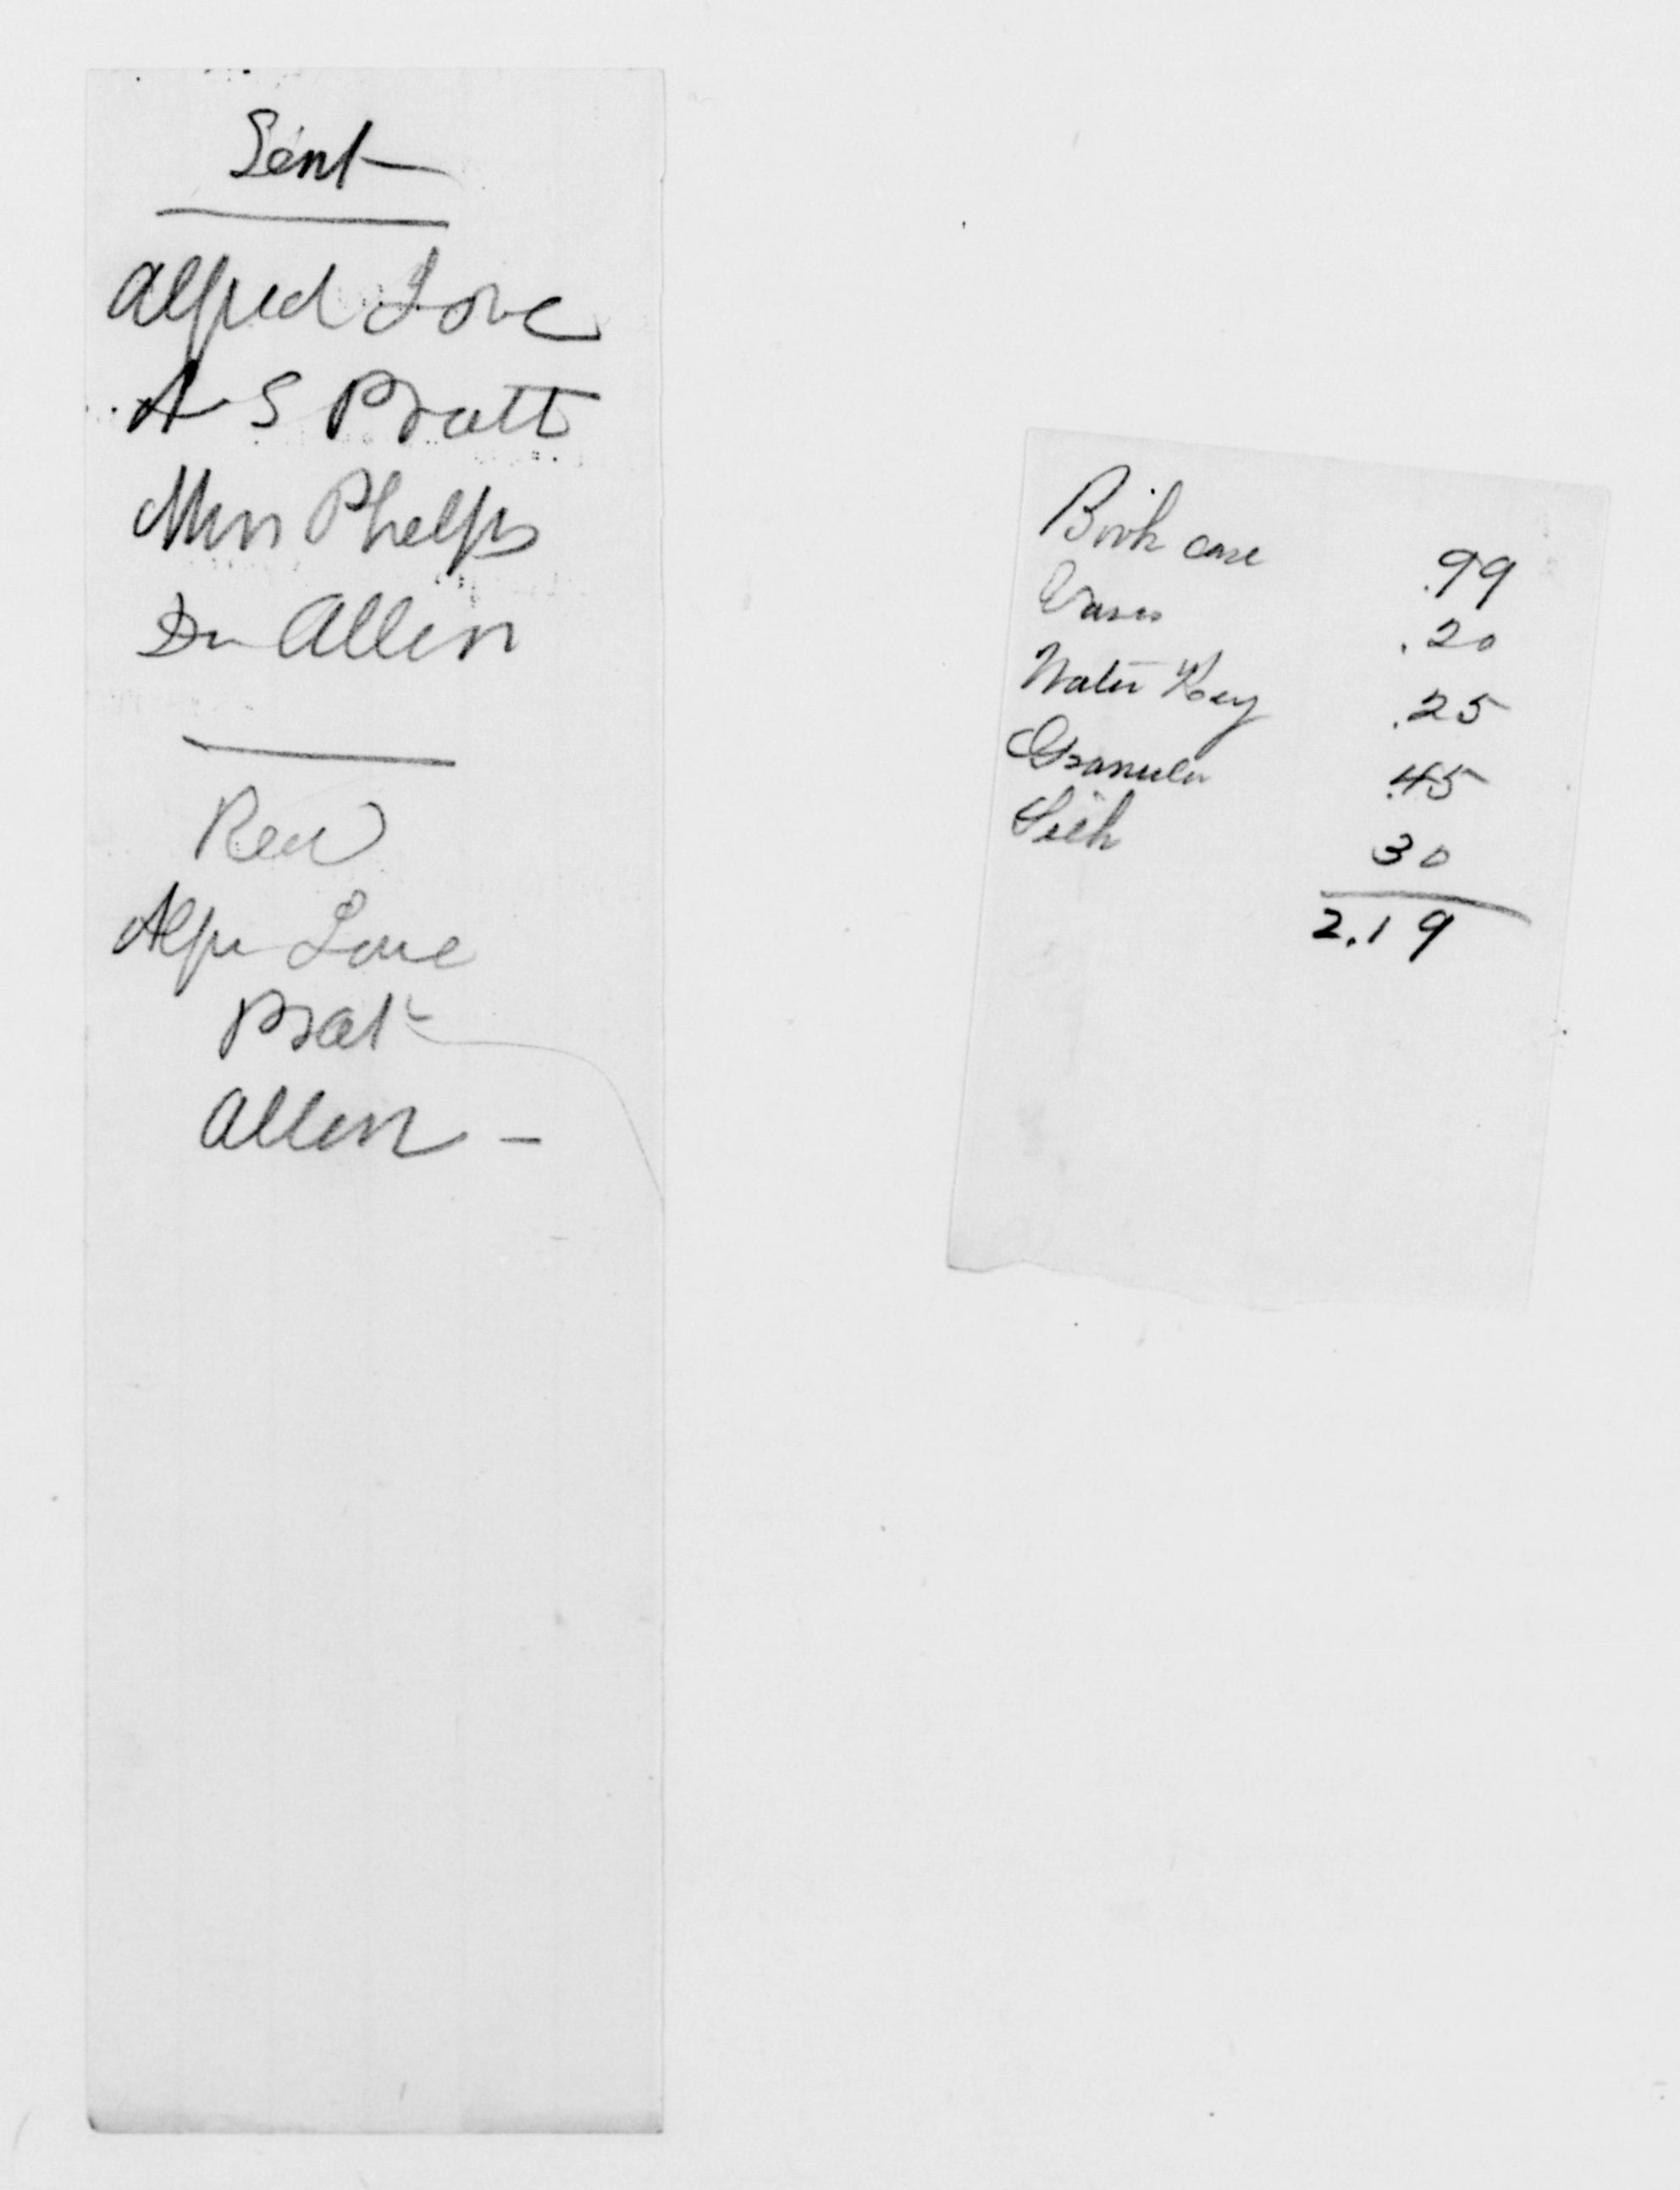 Sent
Alfred Love
A S Pratt
Miss Phelps
Dr Allen
Rec
Alfr Love
Prat
Allen -
Book case .99
Vases .20
Water Key .25
Granula .45
Silk 30
2.19